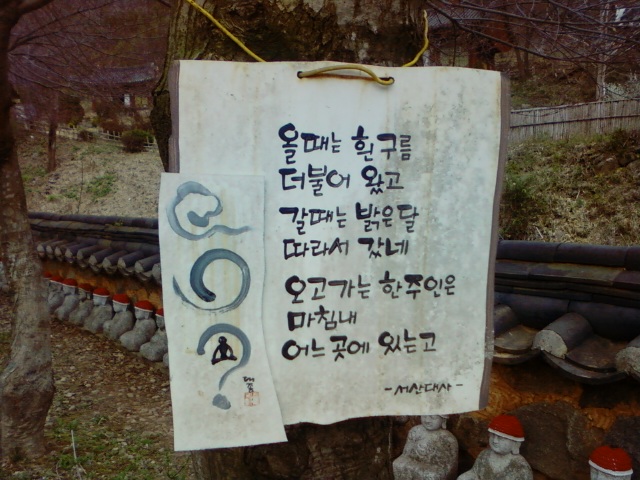 올때는 흰구름
더불어 왔고
갈때는 밝은달
따라서 갔네
오고가는 한주인은
마침내
어느곳에 있는고
-서산대사-